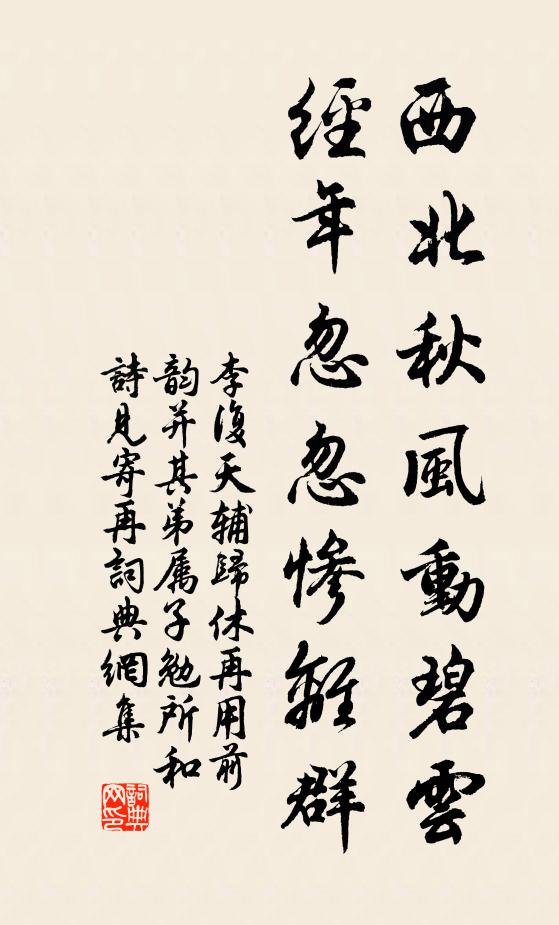 西北秋風動碧雲
經年忽忽慘離群
李復天辅歸休再用前
韵并其弟属子勉所和
詩見寄再詞典網集
詞典网印